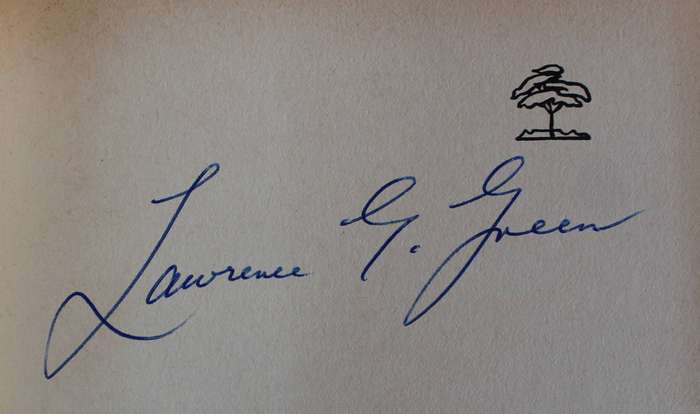 Lawrence G. Green